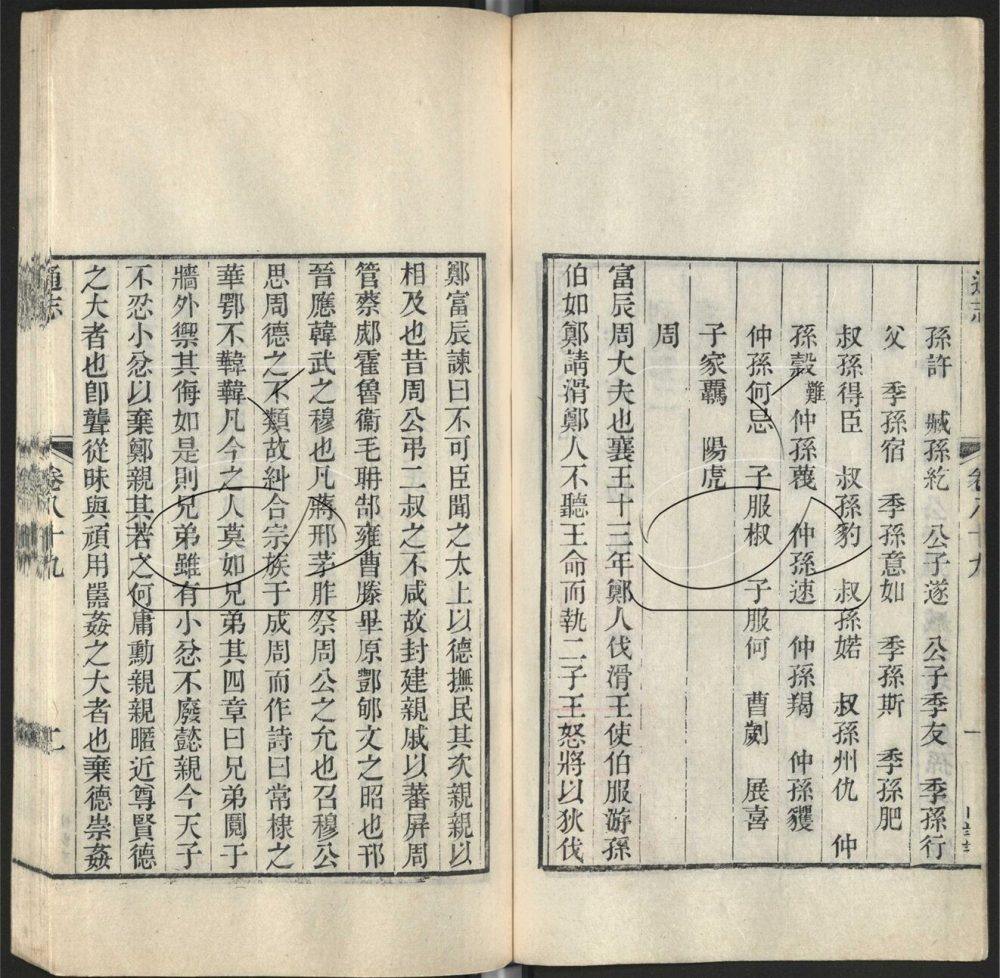 通志
卷八十九
一
孫許 臧孫紇 公子遂 公子季友 季孫行
父 季孫宿 季孫意如 季孫斯 季孫肥
叔孫得臣 叔孫豹 叔孫婼 叔孫州仇 仲
孫穀難 仲孫蔑 仲孫速 仲孫羯 仲孫貜
仲孫何忌 子服椒 子服何 曹劌 展喜
子家覊 陽虎
周
富辰周大夫也襄王十三年鄭人伐滑王使伯服游孫
伯如鄭請滑鄭人不聽王命而執二子王怒將以狄伐
鄭富辰諫曰不可臣聞之太上以德撫民其次親親以
相及也昔周公弔二叔之不咸故封建親戚以蕃屏周
管蔡郕霍魯衞毛聃郜雍曹滕畢原酆郇文之昭也邘
晉應韓武之穆也凡蔣邢茅胙祭周公之允也召穆公
思周德之不類故糾合宗族于成周而作詩曰常棣之
華鄂不韡韡凡今之人莫如兄弟其四章曰兄弟鬩于
牆外禦其侮如是則兄弟雖有小忿不廢懿親今天子
不忍小忿以棄鄭親其若之何庸勳親親暱近尊賢德
之大者也卽聾從昧與頑用嚚姦之大者也棄德崇姦
通志
卷八十九
二